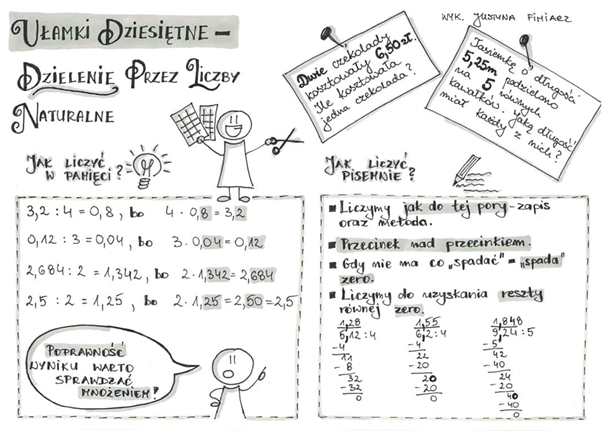 Ułamki Dziesiętne –
Dzielenie Przez Liczby
Naturalne
Wyk. Justyna Fimiarz
Dwie czekolady
kosztowały 6,50zł.
Ile kosztowała
jedna czekolada?
Tasiemkę o długości
5,25m podzielono
na 5 równych
kawałków. Jaką długość
miał każdy z nich?
Jak liczyć
w pamięci?
3,2 : 4 = 0,8, bo 4 · 0,8 = 3,2
0,12 : 3 = 0,04, bo 3 · 0,04 = 0,12
2,684 : 2 = 1,342, bo 2 · 1,342 = 2,684
2,5 : 2 = 1,25, bo 2 · 1,25 = 2,50 = 2,5
Poprawność
wyniku warto
sprawdzać
mnożeniem!
Jak liczyć
pisemnie?
Liczymy jak do tej pory - zapis
oraz metoda.
Przecinek nad przecinkiem.
Gdy nie ma co „spadać" = „spada"
zero.
Liczymy do uzyskania reszty
równej zero.
1,28
5,12 : 4
-4
11
-8
32
-32
0
1,55
6,2 : 4
-4
22
-20
20
-20
0
1,848
9,24 : 5
-5
42
-40
24
-20
40
-40
0